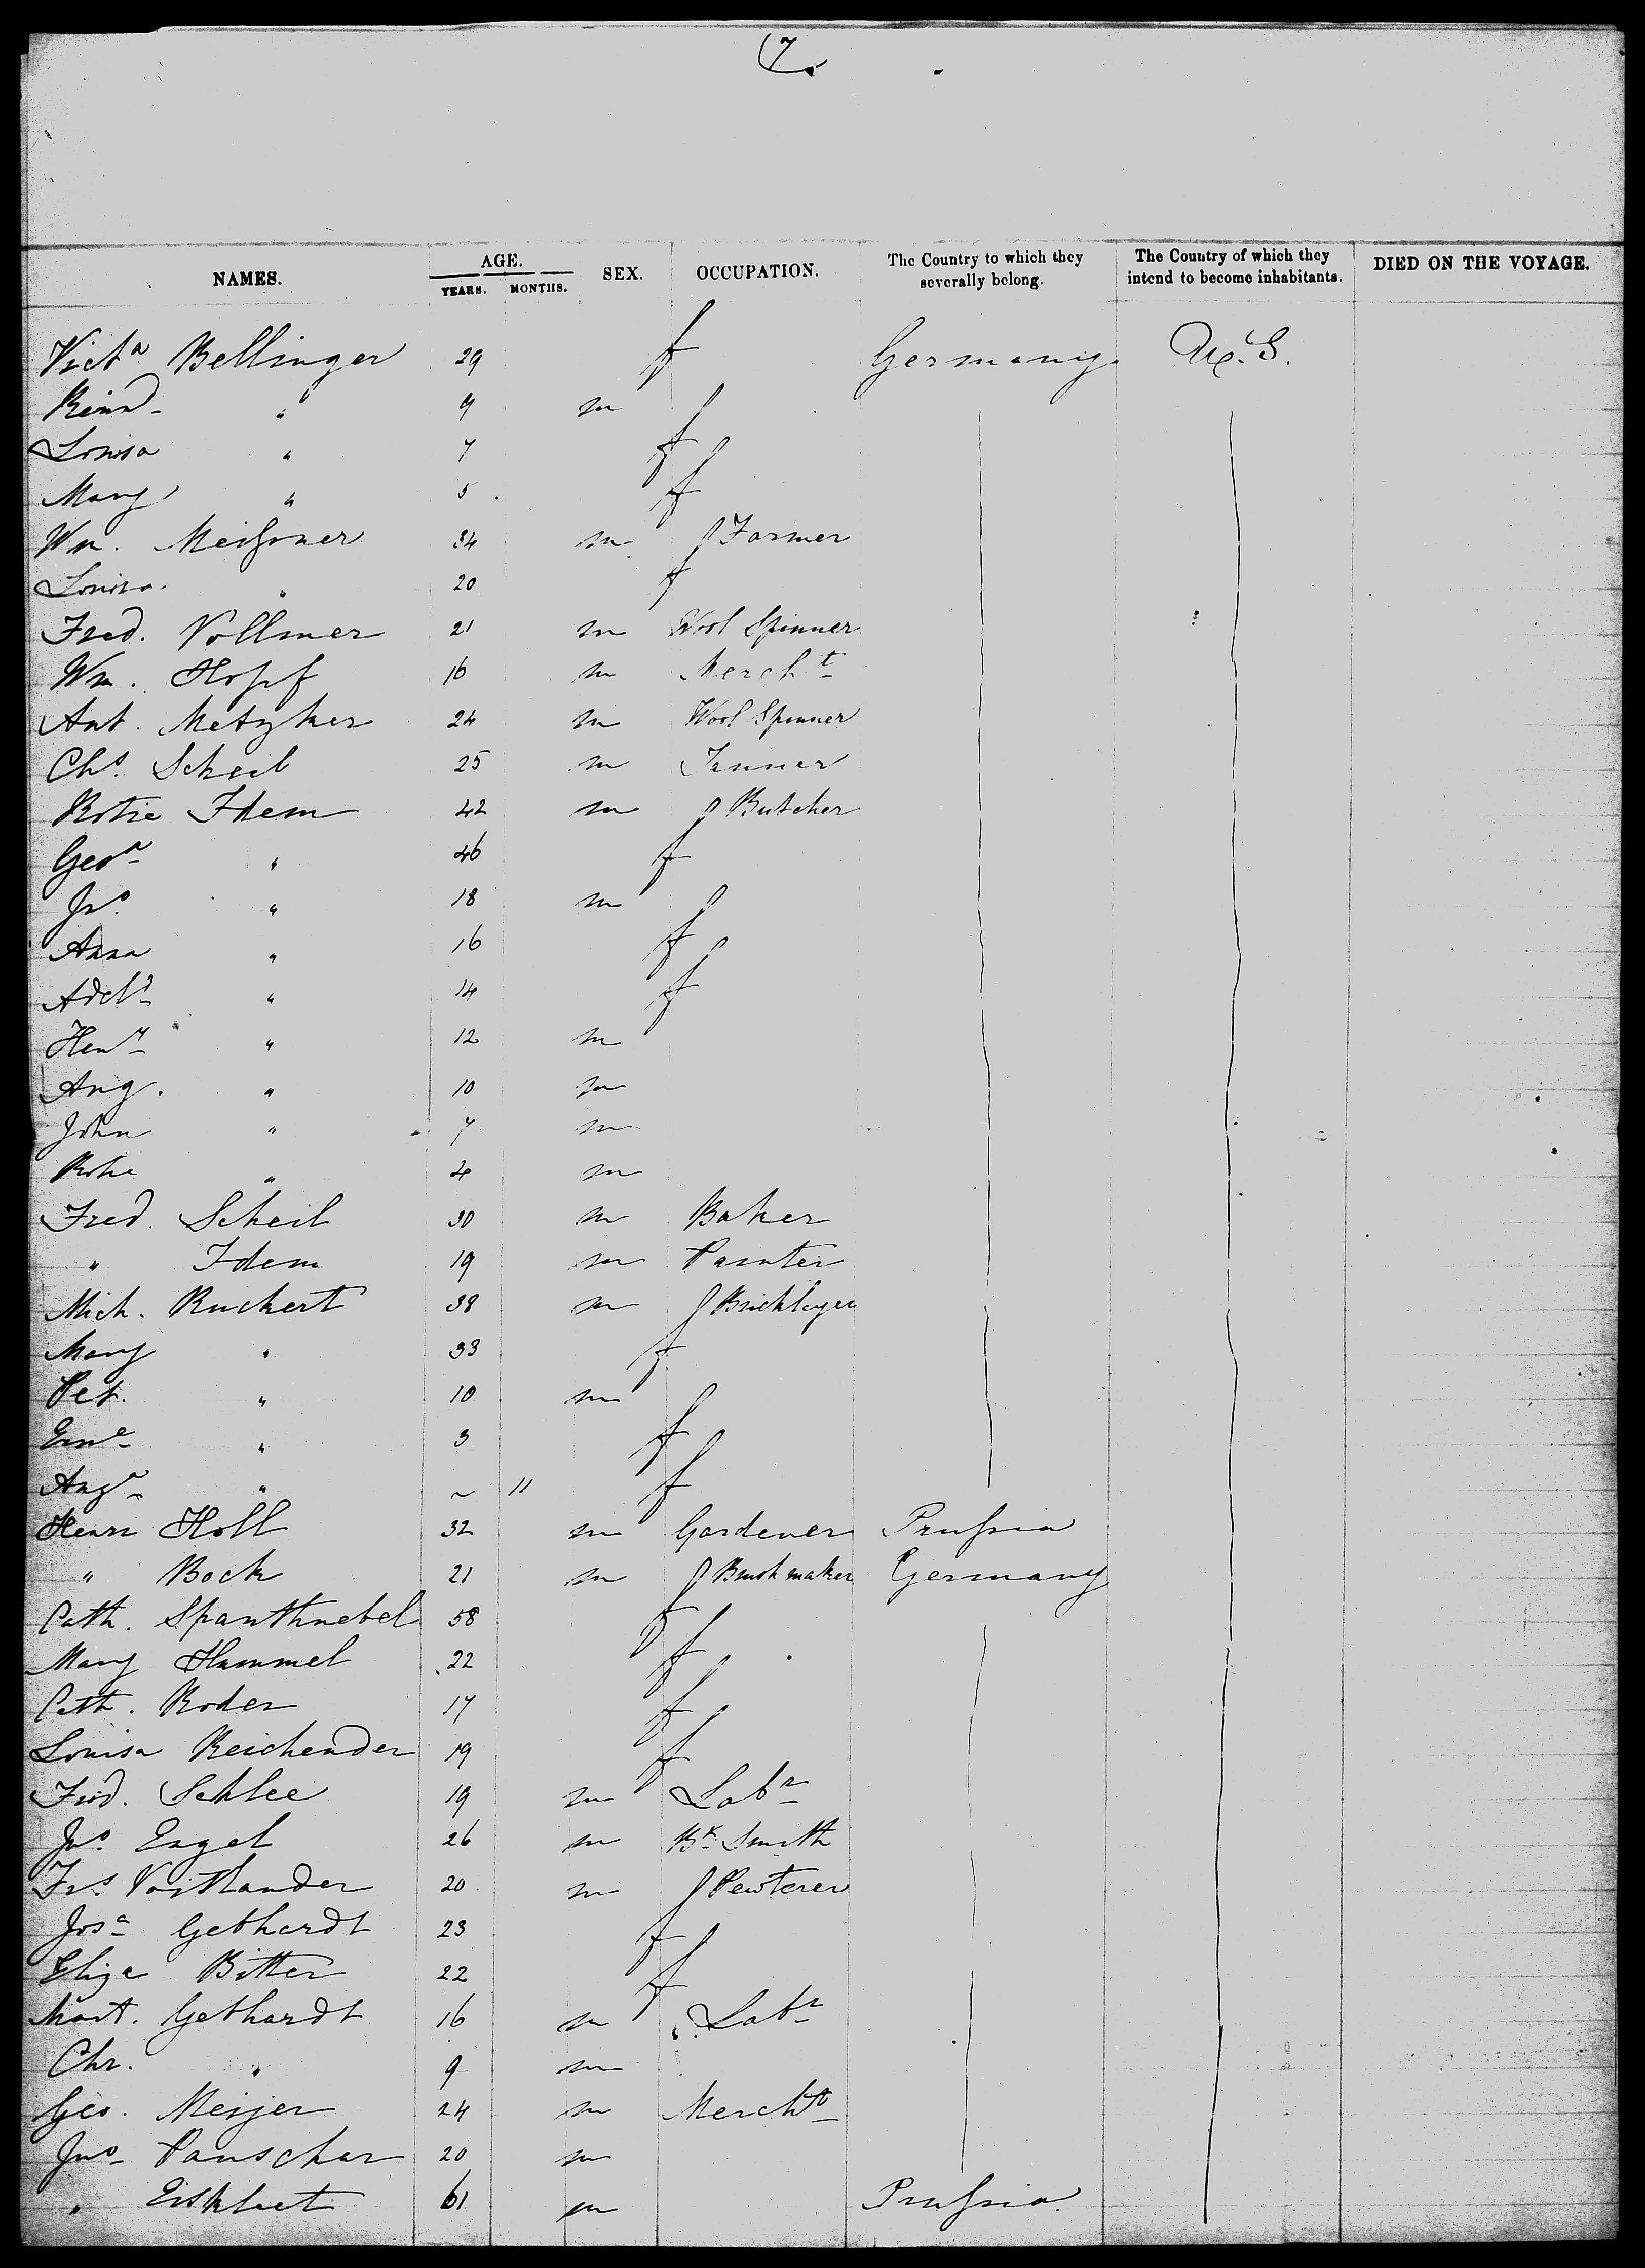 7.
NAMES. AGE. YEARS. MONTHS. SEX. OCCUPATION. The Country to which they severally belong. The Country of which they intend to become inhabitants. DIED ON THE VOYAGE.
Vict.a Bellinger 29 f Germany U. S.
" 9 m
Louisa " 7 f
Mary " 5 f
Wm. Meissner 34 m Farmer
Louisa " 20 f
Fred. Vollmer 21 m Wool Spinner
Wm. Hopf 16 m Mercht
Ant. Metzker 24 m Wool Spinner
Chs. Scheil 25 m Tanner
Idem 42 m Butcher
Geo.a " 46 f
Jno. " 18 m
Anna " 16 f
Adela " 14 f
Heny " 12 m
Aug. " 10 m
John " 7 m
" 4 m
Fred. Scheil 30 m Baker
" Idem 19 m Painter
Mich. Ruckert 38 m Bricklayer
Mary " 33 f
Pet. " 10 m
" 3 f
Auga " ~ 11 f
Henri Holl 32 m Gardener Prussia
" Bock 21 m Brushmaker Germany
Cath. Spanthnebel 58 f
Mary Hammel 22 f
Cath. Roder 17 f
Louisa Reichender 19 f
Fred. Schlee 19 m Labr
Jno. Engel 26 m Bk Smith
Frs. Voitlander 20 m Pewterer
Josa Gebhardt 23 f
Eliza Bitter 22 f
Mart. Gebhardt 16 m Labr
Chr. " 9 m
Geo. Meyer 24 m Mercht
Jno. Pauschar 20 m
" 61 m Prussia